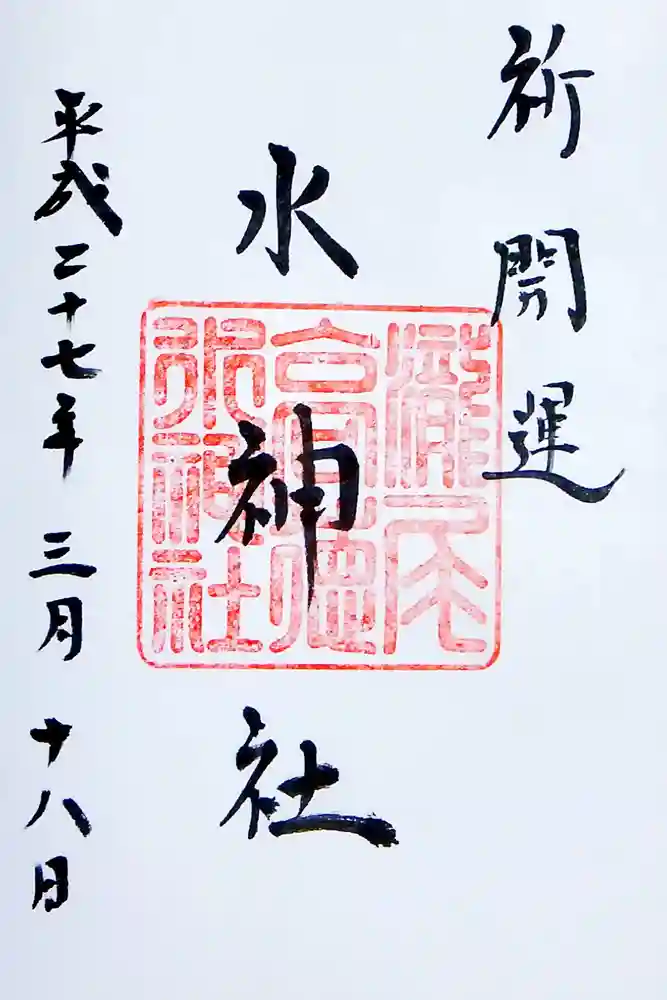 祈開運
水神社
瀧尾
高徳
水神社
平成二十七年三月十八日